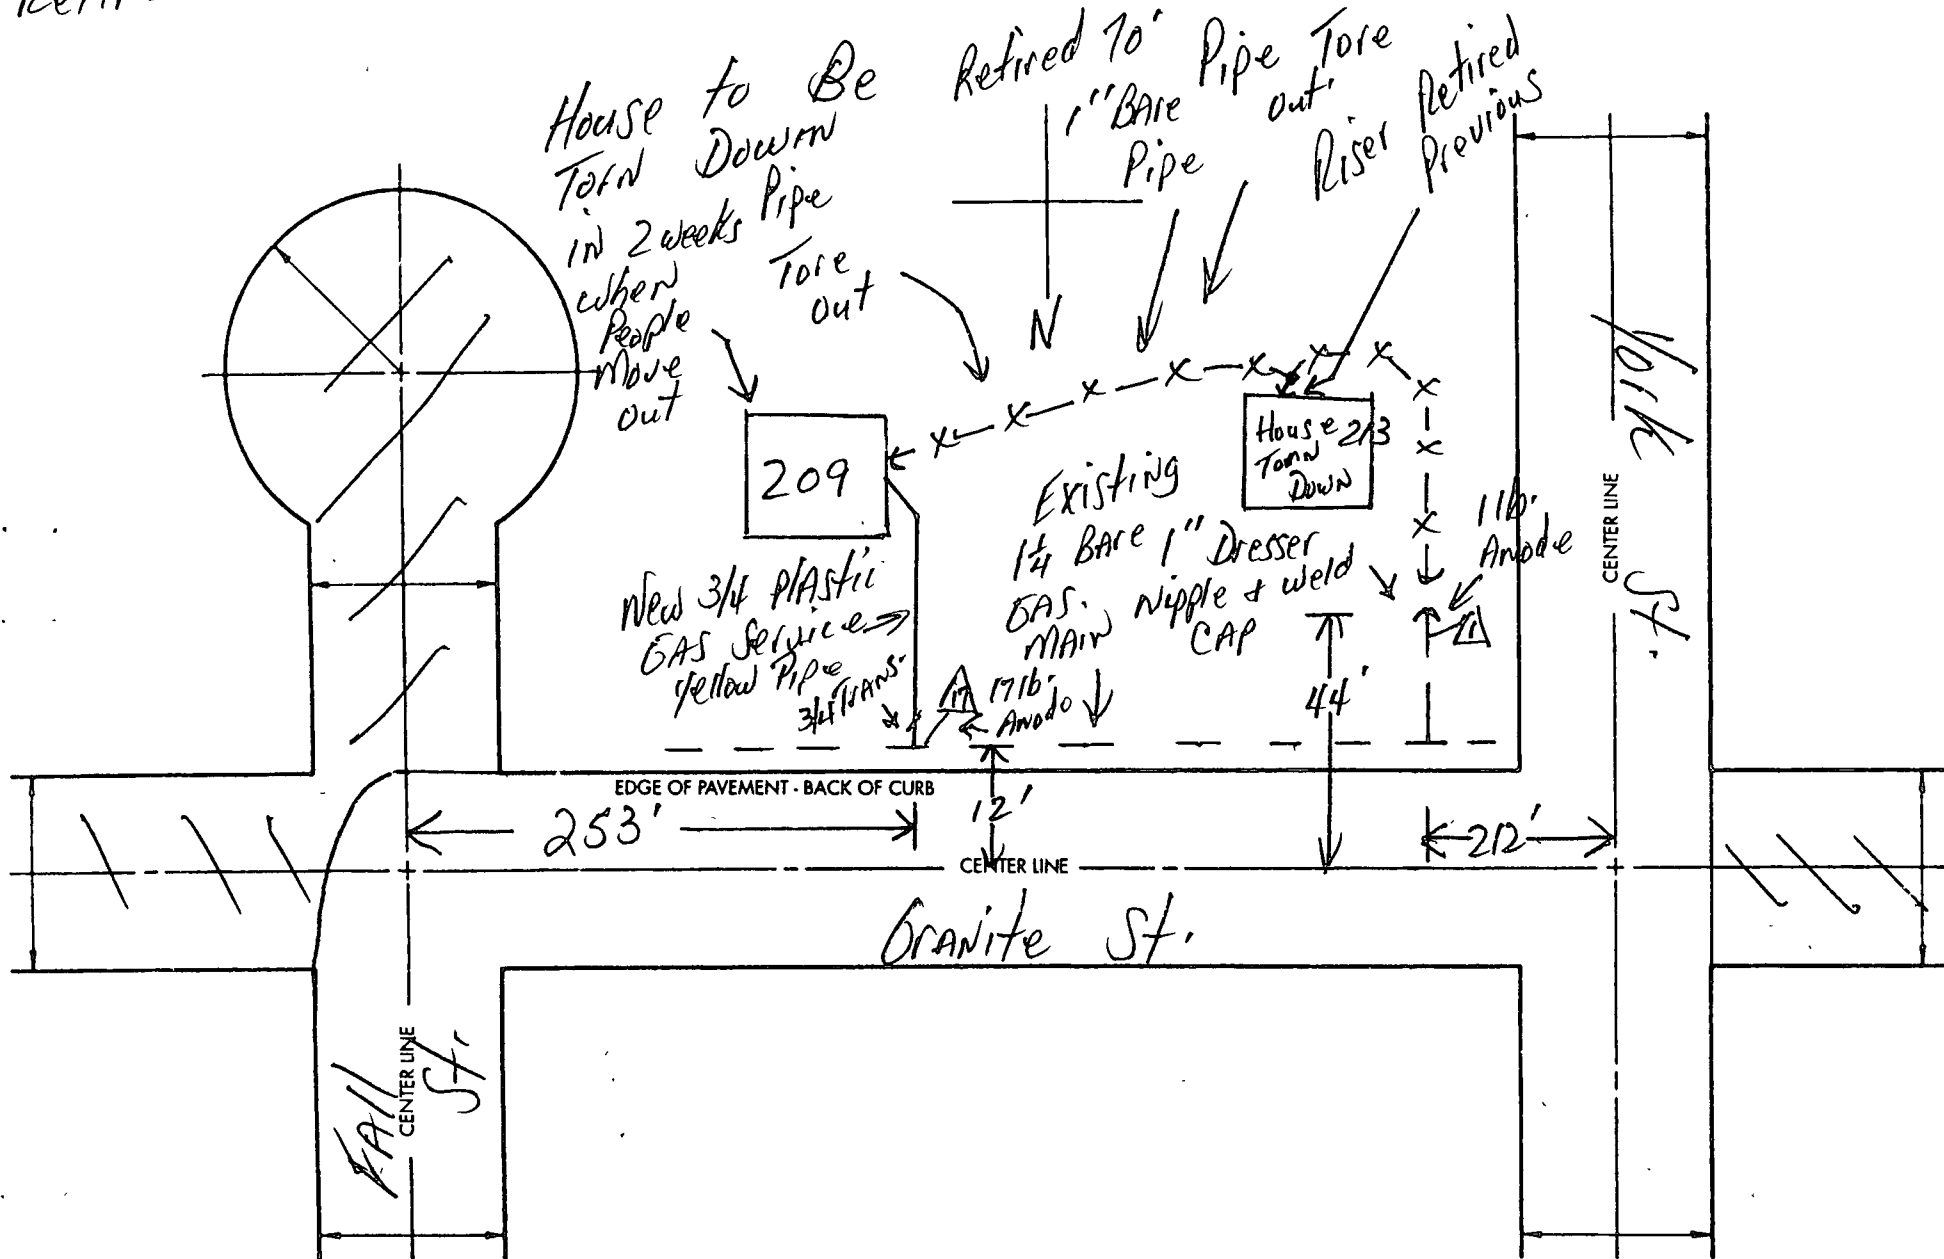 House to Be
Torn Dowwn
in 2 weeks
when
People
Move
out
Pipe
Tore
out
Retired 70'
1" BAre
Pipe
Pipe Tore
out.
Riser Retired
Previous
N
209
House 213
Torn
Down
York St.
CENTER LINE
Existing
1 1/4 BAre
GAS.
MAIN
1" Dresser
Nipple & weld
CAP
1 lb.
Anode
1
New 3/4 PlAstic
GAS Service
Yellow Pipe
3/4 TrANS.
17
17 lb.
Anode
44'
EDGE OF PAVEMENT - BACK OF CURB
253'
12'
212'
CENTER LINE
GrANite St.
FAll St.
CENTER LINE